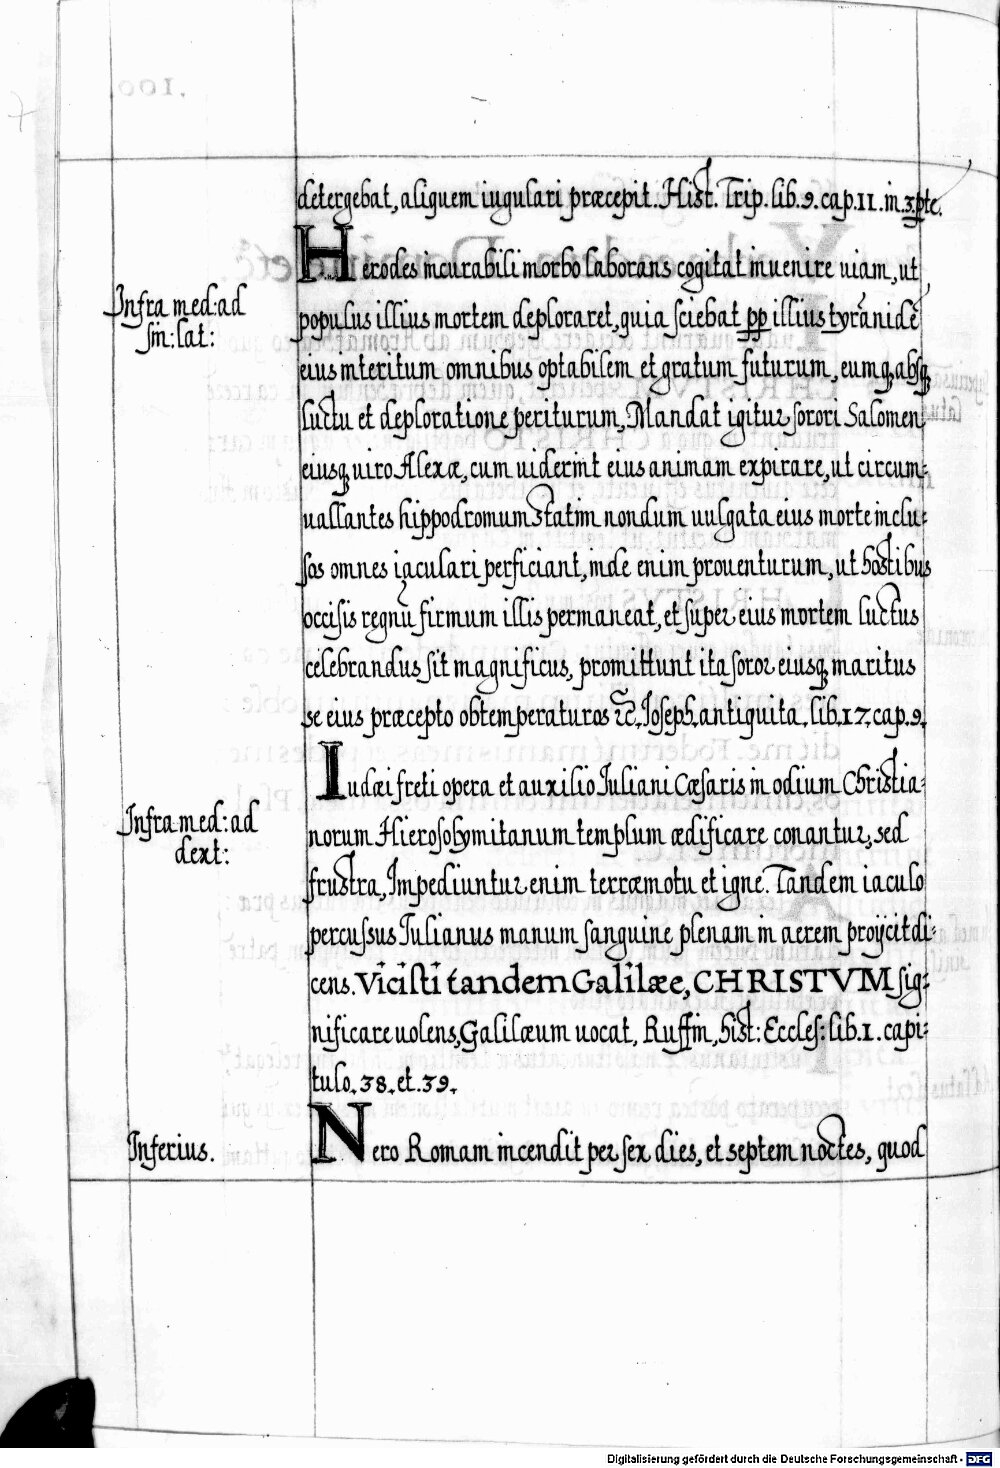 detergebat, aliquem iugulari præcepit. Hist. Trip. lib. 9. cap. 11. in 3. pte.
Infra med: ad
sin: lat:
Herodes incurabili morbo laborans cogitat inuenire uiam, ut
populus illius mortem deploraret, quia sciebat pp illius tyrānidē
eius interitum omnibus optabilem et gratum futurum, eumq, absq
luctu et deploratione periturum, Mandat igitur sorori Salomen
eiusq uiro Alexæ, cum uiderint eius animam expirare, ut circum-
uallantes hippodromum statim nondum uulgata eius morte inclu-
sos omnes iaculari perficiant, inde enim prouenturum, ut hostibus
occisis regnū firmum illis permaneat, et super eius mortem luctus
celebrandus sit magnificus, promittunt ita soror eiusq maritus
se eius præcepto obtemperaturos &c. Joseph. antiquita. lib. 17. cap. 9.
Infra med: ad
dext:
Iudæi freti opera et auxilio Juliani Cæsaris in odium Christia-
norum Hierosolymitanum templum ædificare conantur, sed
frustra, Impediuntur enim terræmotu et igne. Tandem iaculo
percussus Julianus manum sanguine plenam in aerem proijcit di-
cens. Vicisti tandem Galilæe, CHRISTVM sig-
nificare uolens, Galilæum uocat, Ruffin, hist: Eccles: lib. 1. capi-
tulo. 38. et. 39.
Inferius.
Nero Romam incendit per sex dies, et septem noctes, quod
Digitalisierung gefördert durch die Deutsche Forschungsgemeinschaft - DFG